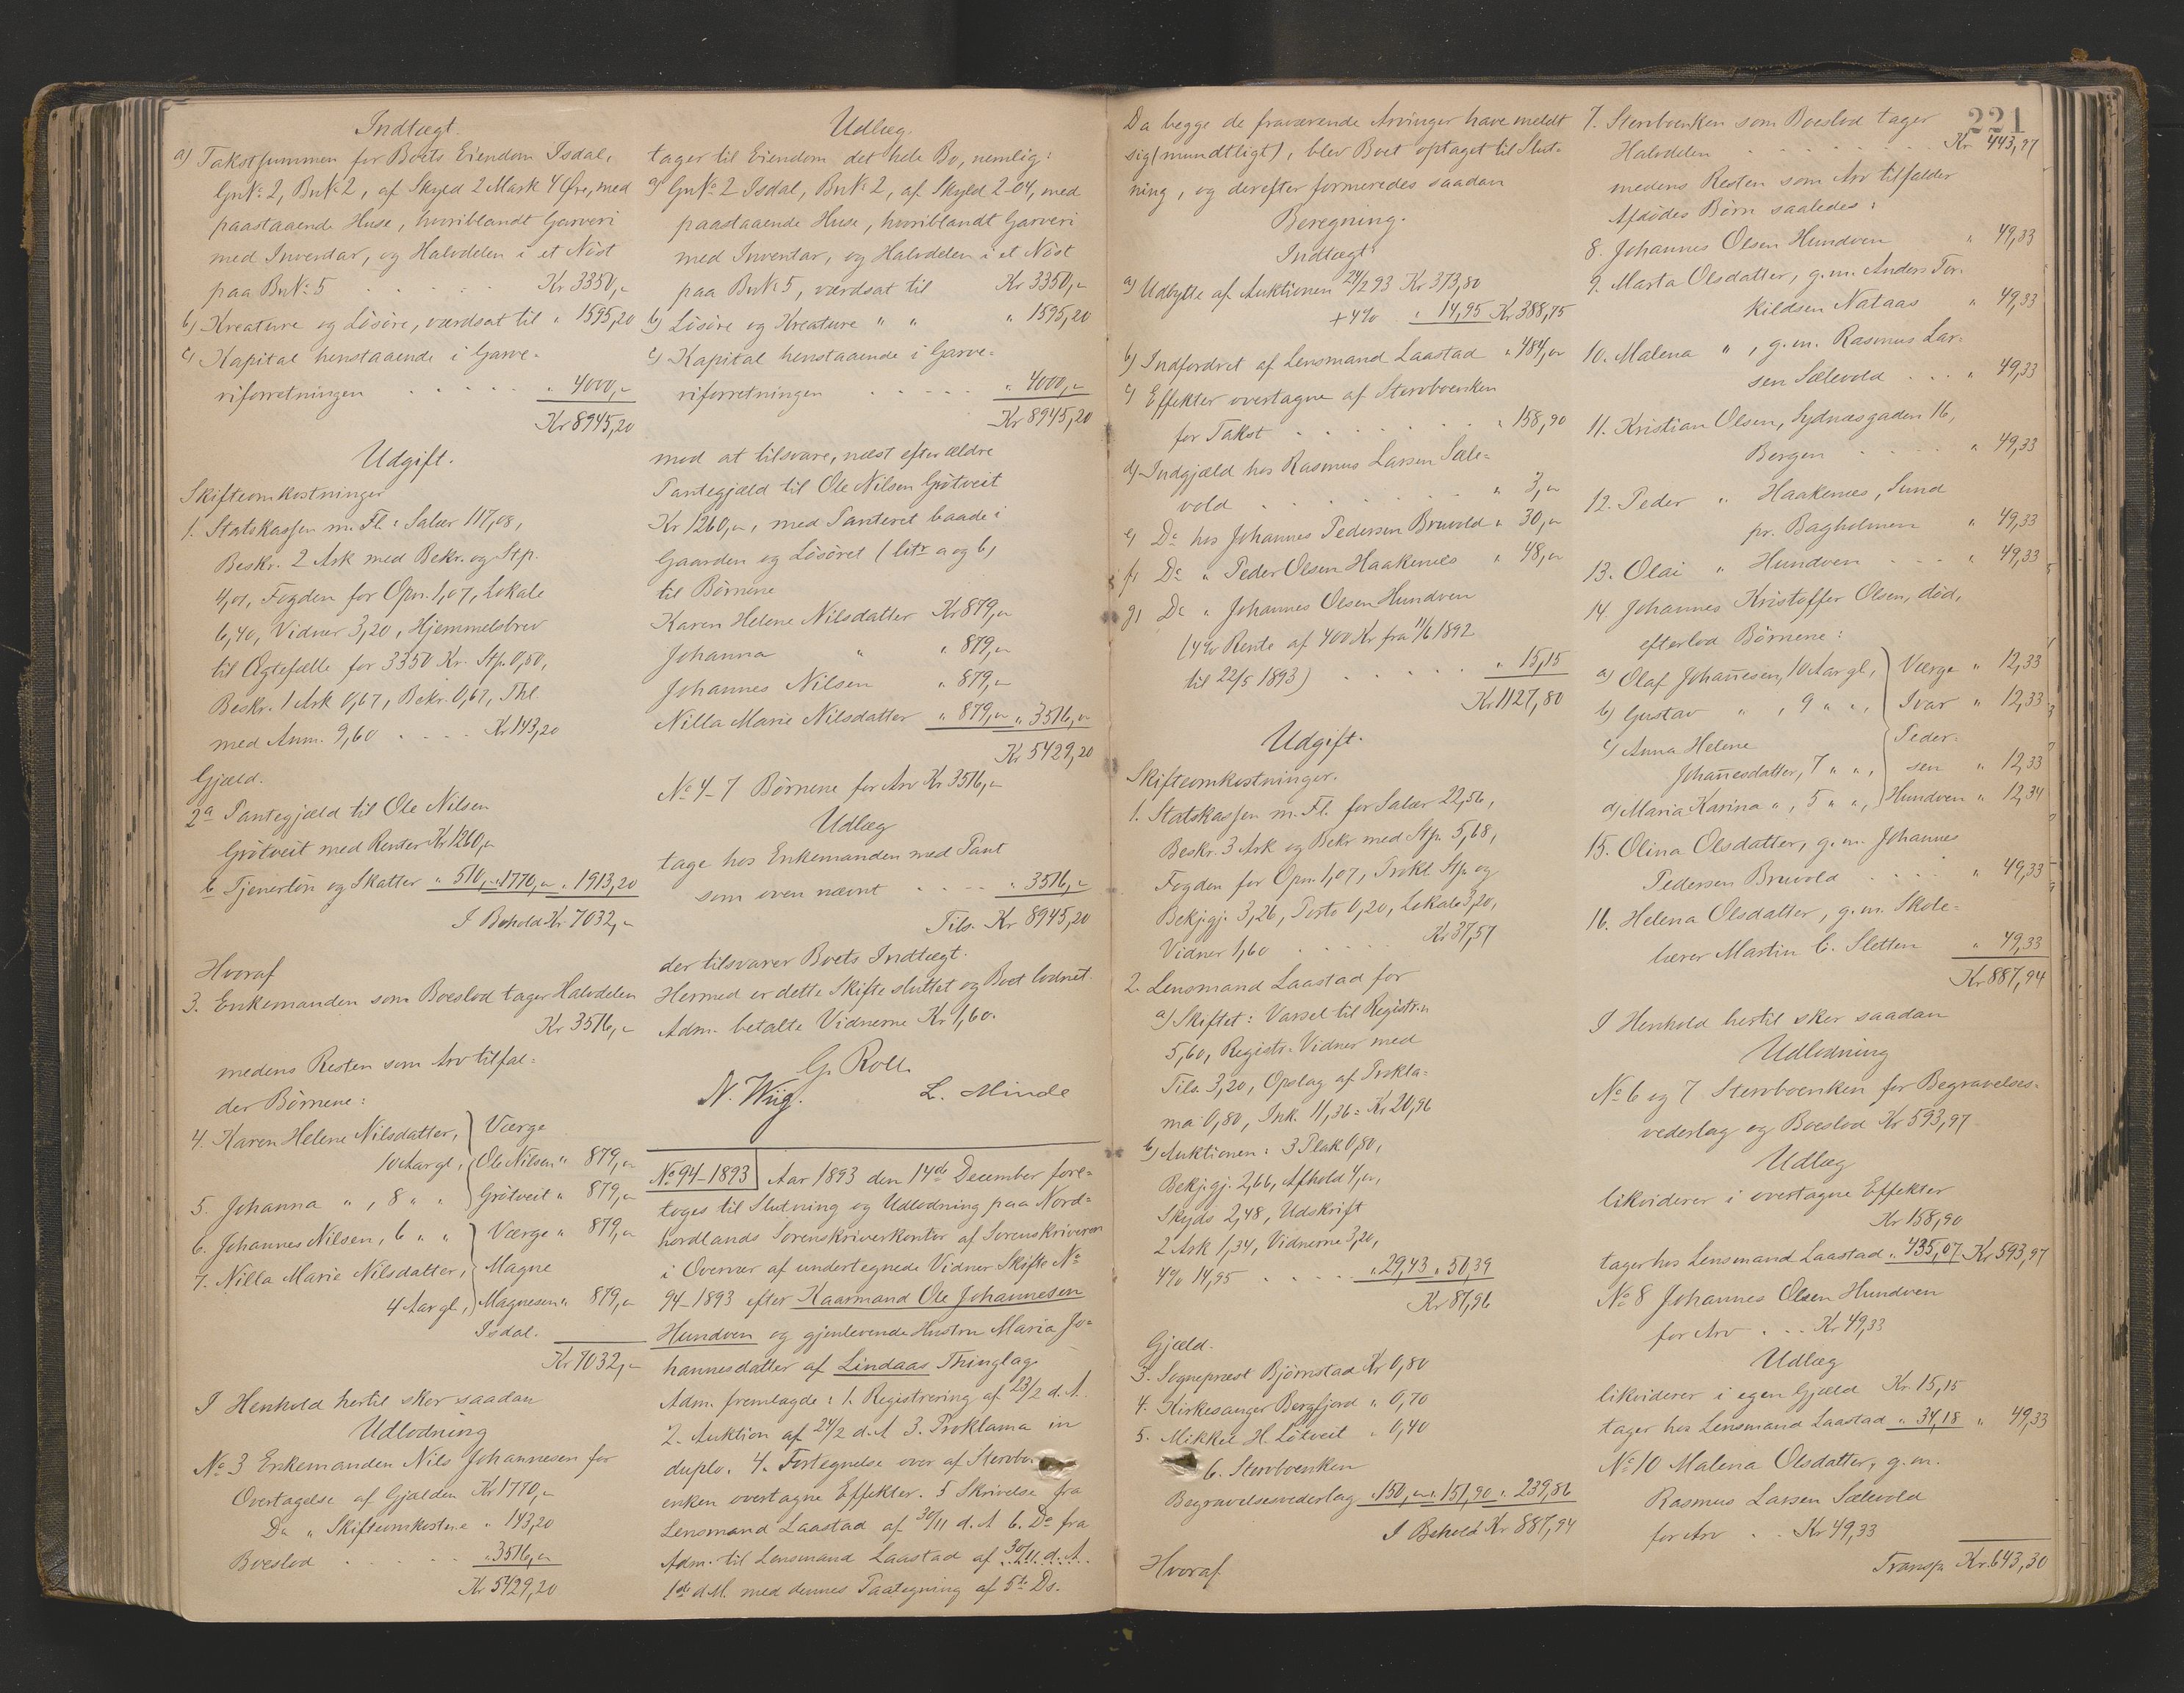 Indtægt.
a) Takstsummen for Boets Eiendom Isdal,
GnN: 2, BnN: 2, af Skyld 2 Mark 4 Øre, med
paastaaende Huse, hvoriblandt Garveri
med Inventar, og Halvdelen i et Nöst
paa BnN: 5 . . . . Kr 3350,-
b) Kreature og Lösöre, værdsat til " 1595,20
c) Kapital henstaaende i Garve-
riforretningen . . . . " 4000,-
Kr 8945,20
Udgift.
Skifteomkostninger
1. Statskassen m. Fl: Salær 117,08,
Beskr. 2 Ark med Bekr. og Stp.
4,01, Fogden for Opn. 1,07, Lokale
6,40, Vidner 3,20, Hjemmelsbrev
til Ægtefælle for 3350 Kr. Stp. 0,50,
Beskr. 1 Ark 0,67, Bekr. 0,67, Thl.
med Anm. 9,60 . . . . Kr 143,20
Gjæld.
2a Pantegjæld til Ole Nilsen
Grötveit med Renter Kr 1260,-
b Tjenerlön og Skatter " 510,- " 1770,- " 1913,20
I Behold Kr 7032,-
Hvoraf
3. Enkemanden som Boeslod tager Halvdelen
Kr 3516,-
medens Resten som Arv tilfal-
der Börnene:
4. Karen Helene Nilsdatter, Værge
10 Aar gl, Ole Nilsen " 879,-
5. Johanna " , 8 " " Grötveit " 879,-
6. Johannes Nilsen, 6 " " Værge " 879,-
7. Nilla Marie Nilsdatter, Magne
4 Aar gl, Magnesen " 879,-
Isdal.
Kr 7032,-
I Henhold hertil sker saadan
Udlodning
No 3 Enkemanden Nils Johannesen for
Overtagelse af Gjælden Kr 1770,-
Do " Skifteomkostn.e " 143,20
Boeslod . . . . " 3516,-
Kr 5429,20
Udlæg.
tager til Eiendom det hele Bo, nemlig:
a) GnNo 2 Isdal, BnNo 2, af Skyld 2-04, med
paastaaende Huse, hvoriblandt Garveri
med Inventar, og Halvdelen i et Nöst
paa BnN: 5, værdsat til Kr 3350,-
b) Lösöre og Kreature " " " 1595,20
c) Kapital henstaaende i Garve-
riforretningen . . . . " 4000,-
Kr 8945,20
mod at tilsvare, næst efter ældre
Pantegjæld til Ole Nilsen Grötveit
Kr 1260,-, med Panteret baade i
Gaarden og Lösöret (litr a og b)
til Börnene
Karen Helene Nilsdatter Kr 879,-
Johanna " " 879,-
Johannes Nilsen " 879,-
Nilla Marie Nilsdatter " 879,- " 3516,-
Kr 5429,20
No 4-7 Börnene for Arv Kr 3516,-
Udlæg
tage hos Enkemanden med Pant
som oven nævnt . . . . " 3516,-
Tils. Kr 8945,20
der tilsvarer Boets Indtægt.
Hermed er dette Skifte sluttet og Boet lodnet.
Adm. betalte Vidnerne Kr 1,60.
G. Roll.
N. Wiig. L. Minde
No 94-1893 Aar 1893 den 14de December fore-
toges til Slutning og Udlodning paa Nord-
hordlands Sorenskriverkontor af Sorenskriveren
i Overvær af undertegnede Vidner Skifte No
94-1893 efter Kaarmand Ole Johannesen
Hundven og gjenlevende Hustru Maria Jo-
hannesdatter af Lindaas Thinglag.
Adm. fremlagde: 1. Registrering af 23/2 d. A.
2. Auktion af 24/2 d. A 3. Proklama in
duplo. 4. Fortegnelse over af Stervbo-
enken overtagne Effekter. 5 Skrivelse fra
Lensmand Laastad af 30/11 d. A 6. Do fra
Adm. til Lensmand Laastad af
1ste d.M. med dennes Paategning af 5te Ds.
221
Da begge de fraværende Arvinger have meldt
sig (mundtligt), blev Boet optaget til Slut-
ning, og derefter formeredes saadan
Beregning.
Indtægt:
a) Udbytte af Auktionen 24/2 93 Kr 373,80
+ 4% " 14,95 Kr 388,75
b) Indfordret af Lensmand Laastad " 484,-
c) Effekter overtagne af Stervboenken
for Takst . . . . " 158,90
d) Indgjæld hos Rasmus Larsen Sæle-
vold . . . . " 3,-
e) Do hos Johannes Pedersen Bruvold " 30,-
f) Do " Peder Olsen Haakenæs " 48,-
g) Do " Johannes Olsen Hundven
(4% Rente af 400 Kr fra 11/6 1892
til 22/5 1893) . . . . " 15,15
Kr 1127,80
Udgift.
Skifteomkostninger.
1. Statskassen m. Fl. for Salær 22,56,
Beskr. 3 Ark og Bekr med Stp. 5,68,
Fogden for Opn. 1,07, Prokl. Stp. og
Bekj.gj. 3,26, Porto 0,20, Lokale 3,20,
Vidner 1,60 . . . . Kr 37,57
2. Lensmand Laastad for
a) Skiftet: Varsel til Registr.n
5,60, Registr. Vidner med
Tils. 3,20, Opslag af Prokla-
ma 0,80, Ink. 11,36 = Kr 20,96
b) Auktionen: 3 Plak 0,80,
Bekj.gj. 2,66, Afhold 4,-,
Skyds 2,48, Udskrift
2 Ark 1,34, Vidnerne 3,20,
4% 14,95 . . . . " 29,43 " 50,39
Kr 87,96
Gjæld.
3. Sogneprest Björnstad Kr 0,80
4. Kirkesanger Bergfjord " 0,70
5. Mikkel H. Lötveit " 0,40
6. Stervboenken
Begravelsesvederlag " 150,- " 151,90 " 239,86
I Behold Kr 887,94
Hvoraf
7. Stervboenken som Boeslod tager
Halvdelen . . . . Kr 443,97
medens Resten som Arv tilfalder
Afdödes Börn saaledes:
8. Johannes Olsen Hundven " 49,33
9. Marta Olsdatter, g. m. Anders Tor-
kildsen Nataas " 49,33
10. Malena " , g. m. Rasmus Lar-
sen Sælevold . . . " 49,33
11. Kristian Olsen, Sydnæsgaden 16,
Bergen . . . . " 49,33
12. Peder " Haakenæs, Sund
pr. Bagholmen " 49,33
13. Olai " Hundven . . . " 49,33
14. Johannes Kristoffer Olsen, död,
efterlod Börnene:
a) Olaf Johan̄esen, 10 Aar gl, Værge " 12,33
b) Gustav " , 9 " " , Ivar " 12,33
c) Anna Helene Peder-
Johan̄esdatter, 7 " " , sen " 12,33
d) Maria Karina " , 5 " " , Hundven " 12,34
15. Olina Olsdatter, g. m. Johannes
Pedersen Bruvold . . . . " 49,33
16. Helena Olsdatter, g. m. Skole-
lærer Martin C. Sletten " 49,33
Kr 887,94
I Henhold hertil sker saadan
Udlodning
No 6 og 7 Stervboenken for Begravelses-
vederlag og Boeslod Kr 593,97
Udlæg
likviderer i overtagne Effekter
Kr 158,90
tager hos Lensmand Laastad " 435,07 Kr 593,97
No 8 Johannes Olsen Hundven
for Arv . . . Kr 49,33
Udlæg
likviderer i egen Gjæld Kr 15,15
tager hos Lensmand Laastad " 34,18 " 49,33
No 10 Malena Olsdatter, g. m.
Rasmus Larsen Sælevold
for Arv . . Kr 49,33
Transp. Kr 643,30